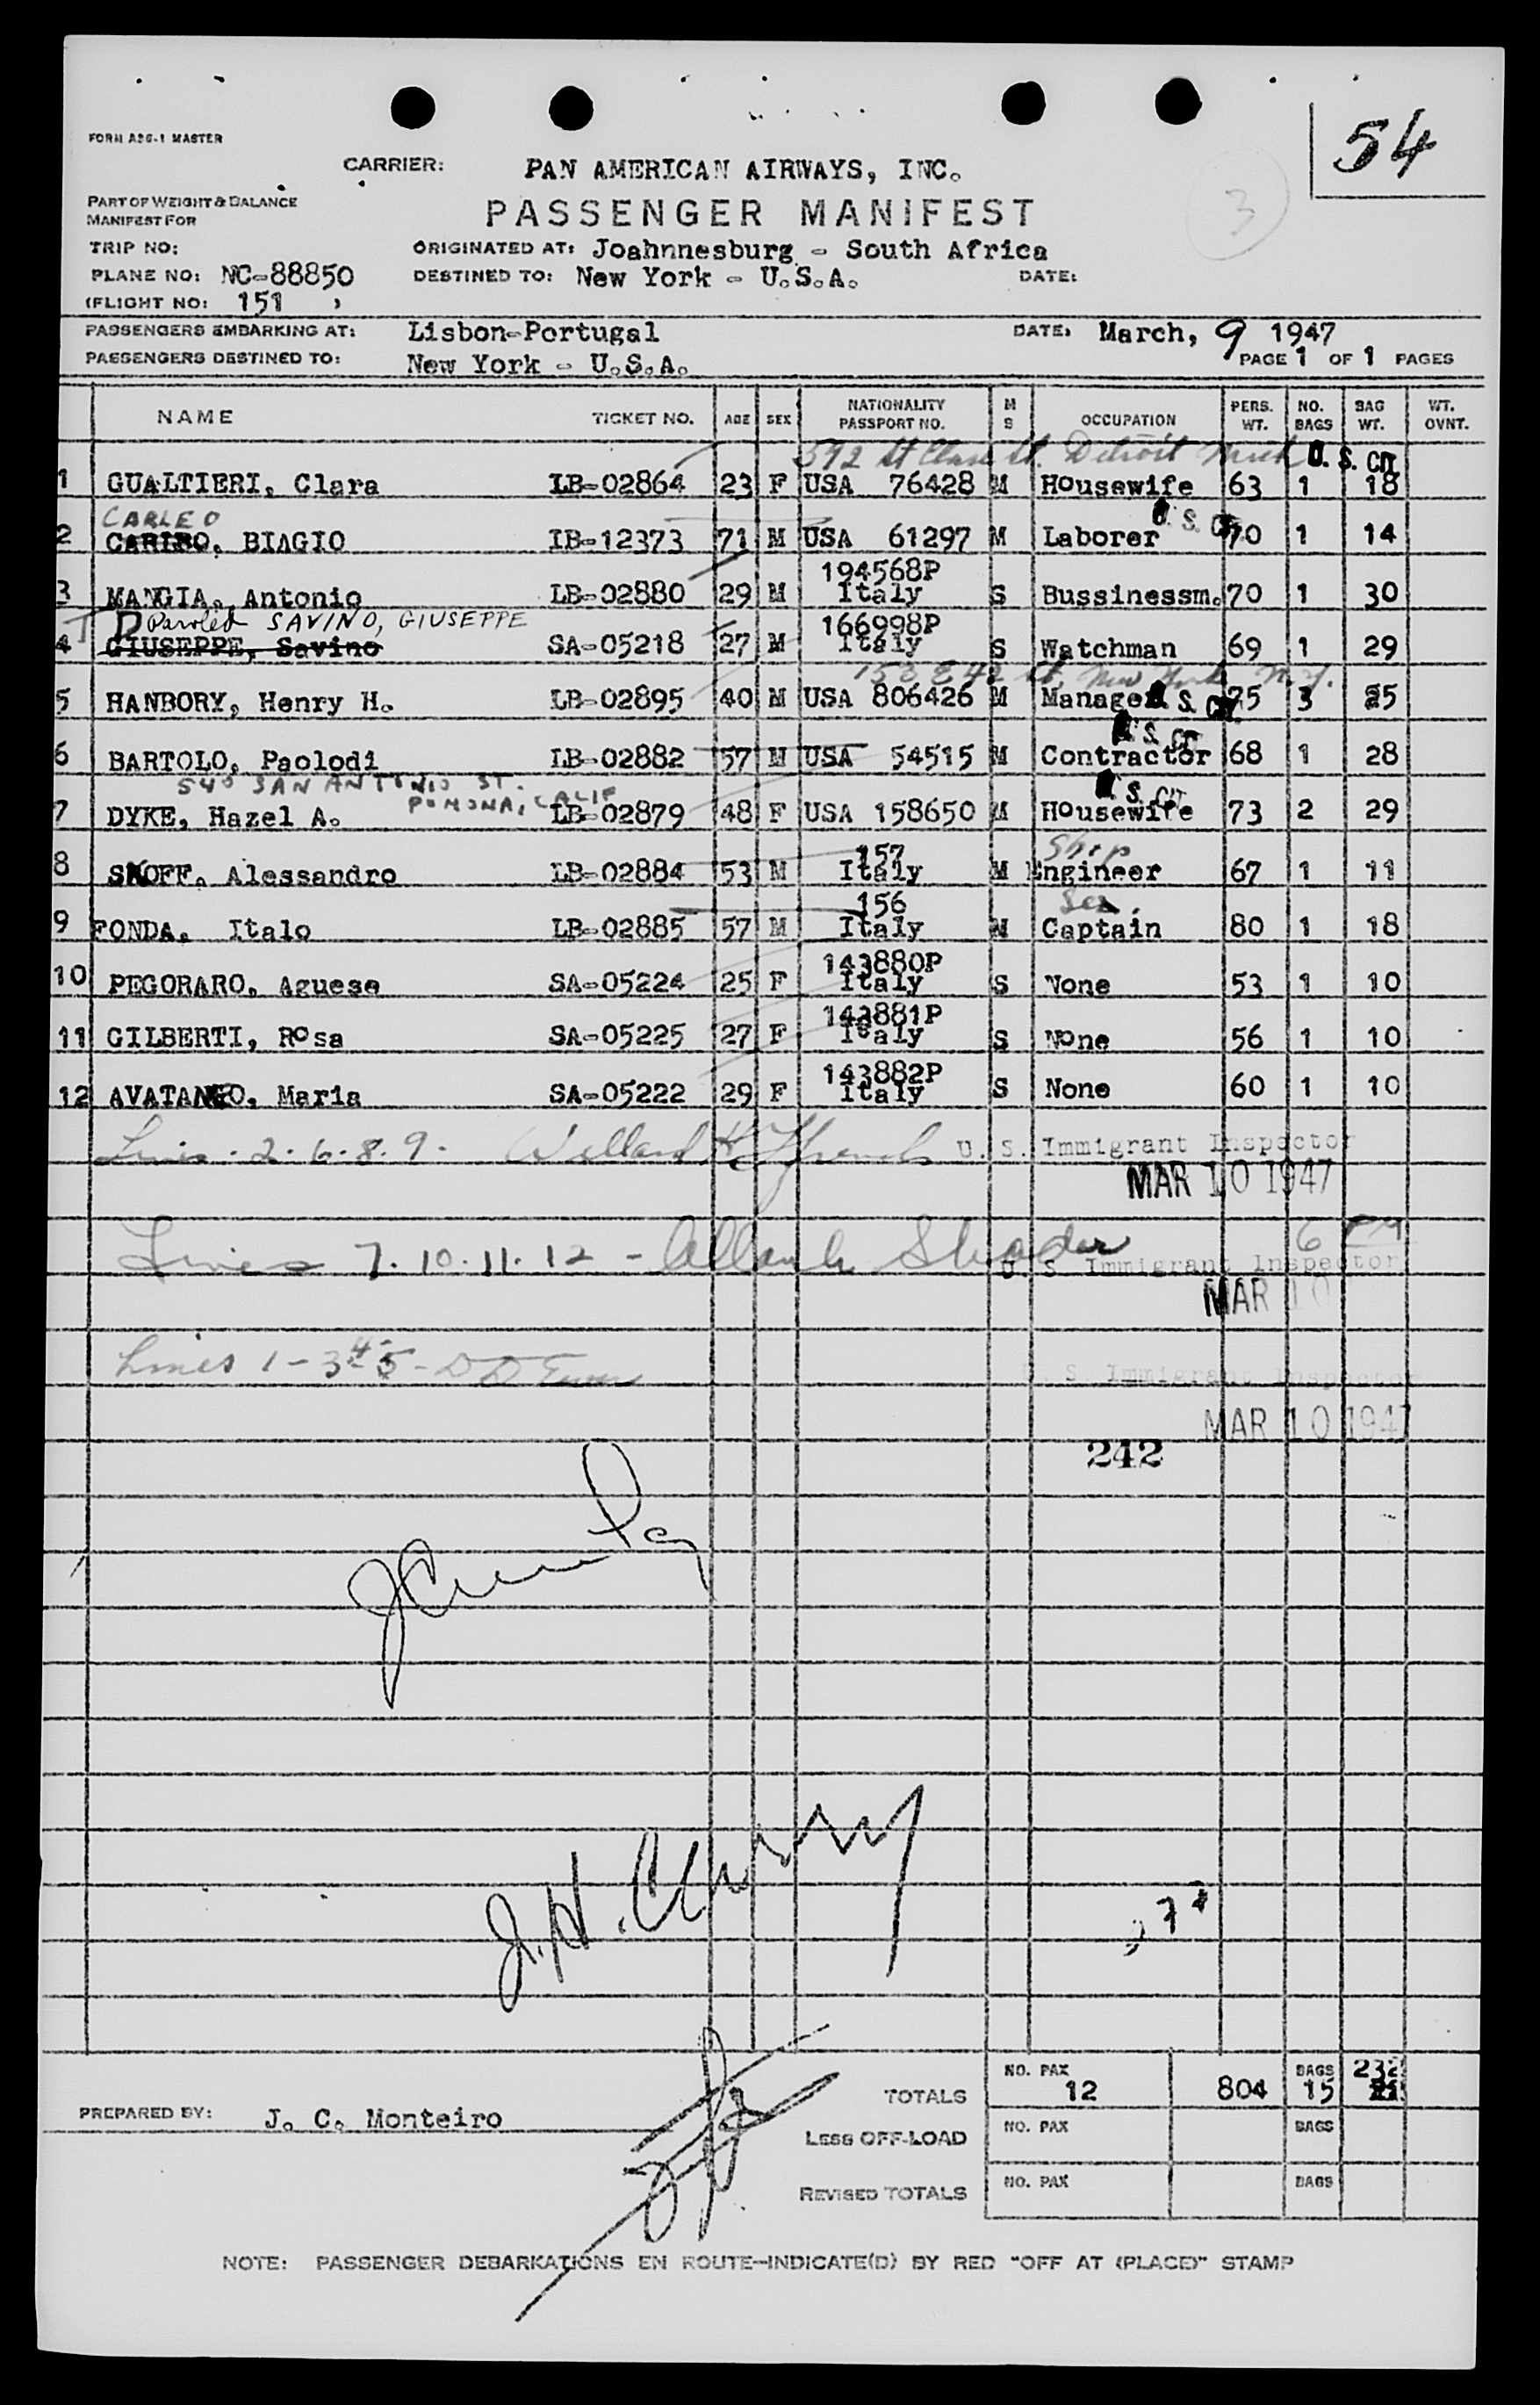 54
FORM ABG-1 MASTER
CARRIER: PAN AMERICAN AIRWAYS, INC.
3
PART OF WEIGHT & BALANCE
MANIFEST FOR
PASSENGER MANIFEST
TRIP NO: ORIGINATED AT: Joahnnesburg - South Africa
PLANE NO: NC-88850 DESTINED TO: New York - U.S.A. DATE:
(FLIGHT NO: 151 )
PASSENGERS EMBARKING AT: Lisbon-Portugal DATE: March, 9 1947
PASSENGERS DESTINED TO: New York - U.S.A. PAGE 1 OF 1 PAGES
NAME TICKET NO. AGE SEX NATIONALITY PASSPORT NO. M S OCCUPATION PERS. WT. NO. BAGS BAG WT. WT. OVNT.
592 St Clair St. Detroit Mich U. S. CIT
1 GUALTIERI, Clara LB-02864 23 F USA 76428 M Housewife 63 1 18
CARLEO U. S. CIT
2 BIAGIO IB-12373 71 M USA 61297 M Laborer 70 1 14
194568P
3 MANGIA, Antonio LB-02880 29 M Italy S Bussinessm. 70 1 30
T D Paroled SAVINO, GIUSEPPE 166998P
4 GIUSEPPE, Savino SA-05218 27 M Italy S Watchman 69 1 29
153 E 42 St, New York N.Y.
5 HANBORY, Henry H. LB-02895 40 M USA 806426 M Manager U. S. CIT. 75 3 25
U. S. CIT
6 BARTOLO, Paolodi LB-02882 57 M USA 54515 M Contractor 68 1 28
540 SAN ANTONIO ST.
POMONA, CALIF U. S. CIT
7 DYKE, Hazel A. LB-02879 48 F USA 158650 M Housewife 73 2 29
157 Ship
8 SKOFF, Alessandro LB-02884 53 M Italy M Engineer 67 1 11
156 Sea
9 FONDA, Italo LB-02885 57 M Italy M Captain 80 1 18
143880P
10 PEGORARO, Aguese SA-05224 25 F Italy S None 53 1 10
143881P
11 GILBERTI, Rosa SA-05225 27 F Italy S None 56 1 10
143882P
12 AVATANEO, Maria SA-05222 29 F Italy S None 60 1 10
Lines - 2. 6. 8. 9. Willard U. S. Immigrant Inspector
MAR 10 1947
6 PM
Lines 7. 10. 11. 12 - U. S. Immigrant Inspector
MAR 10
Lines 1 - 3 4 - 5 - U. S. Immigrant Inspector
MAR 10 1947
242
J. H.
TOTALS NO. PAX 12 804 BAGS 15 232
PREPARED BY: J. C. Monteiro
LESS OFF-LOAD NO. PAX BAGS
REVISED TOTALS NO. PAX BAGS
NOTE: PASSENGER DEBARKATIONS EN ROUTE—INDICATE(D) BY RED "OFF AT (PLACE)" STAMP